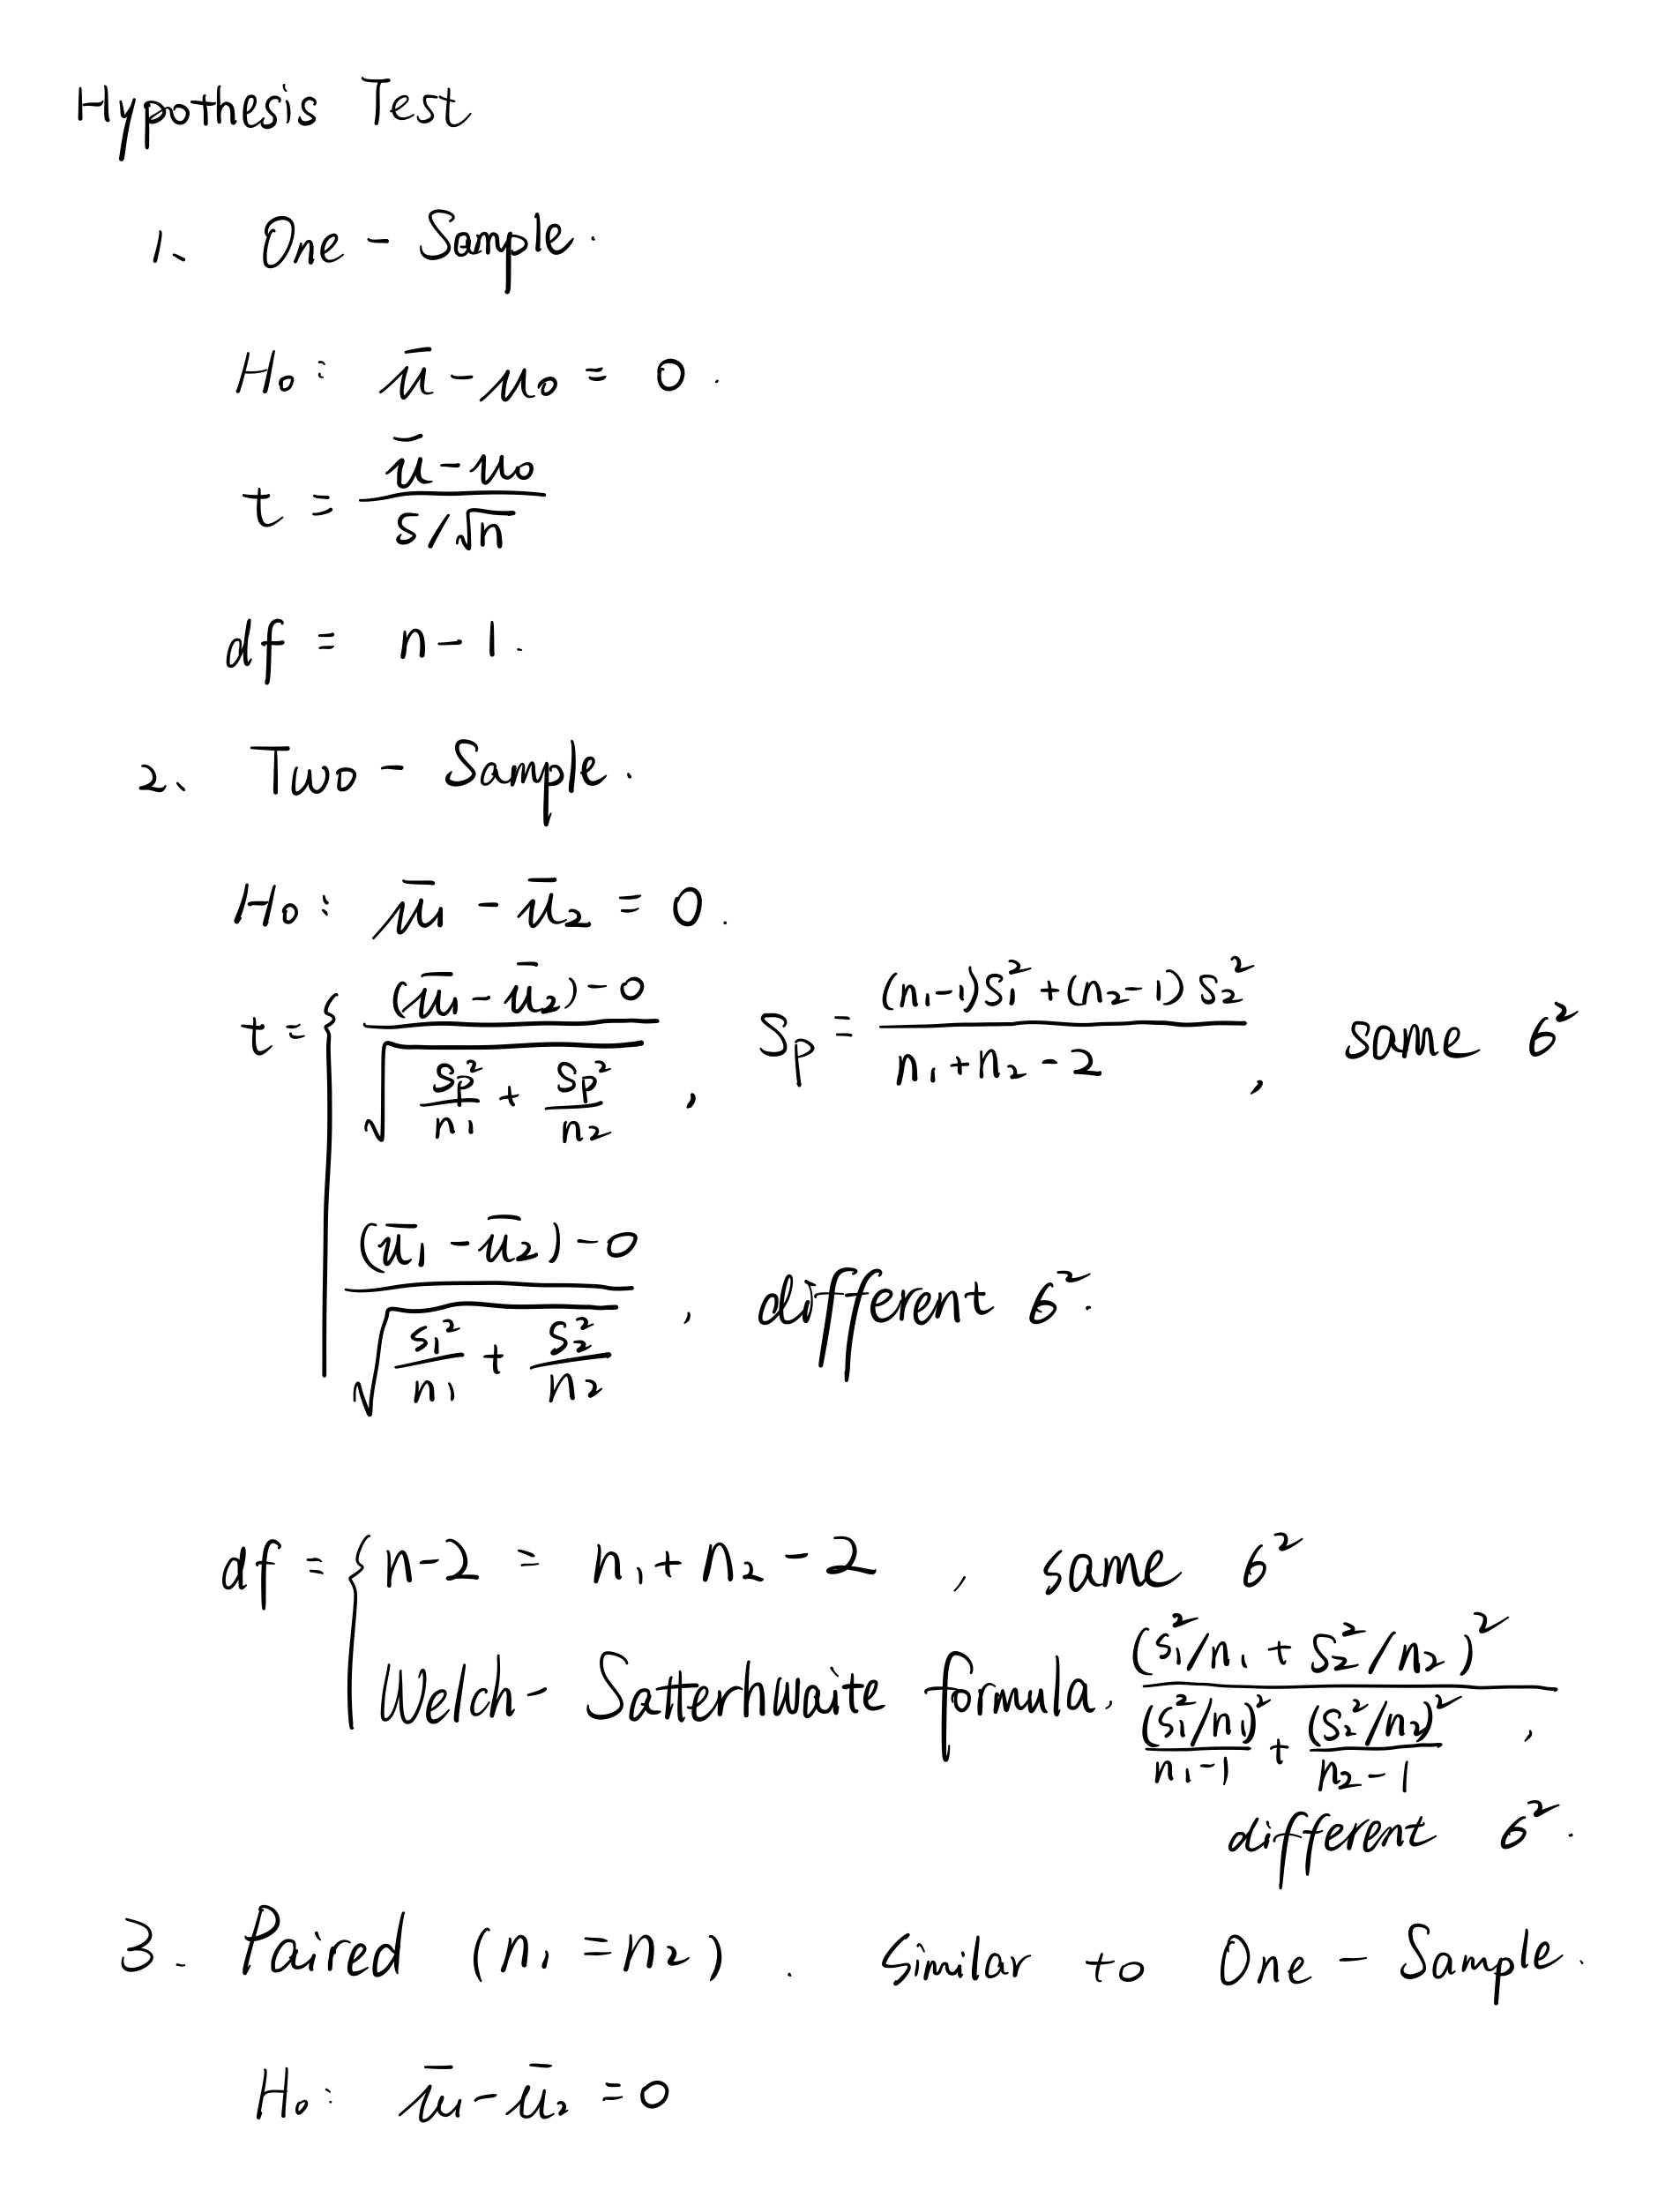 Hypothesis Test
1、 One - Sample.
H₀: μ̄ - μ₀ = 0.
t = (μ̄ - μ₀) / (s/√n)
df = n - 1.
2、 Two - Sample.
H₀: μ̄₁ - μ̄₂ = 0.
t = { ((μ̄₁ - μ̄₂) - 0) / √(Sp²/n₁ + Sp²/n₂) , Sp = ((n₁-1)S₁² + (n₂-1)S₂²) / (n₁+n₂-2) , same σ²
((μ̄₁ - μ̄₂) - 0) / √(S₁²/n₁ + S₂²/n₂) , different σ².
df = { n-2 = n₁+n₂-2 , same σ²
Welch - Satterhwaite formula. (S₁²/n₁ + S₂²/n₂)² / ((S₁²/n₁)²/(n₁-1) + (S₂²/n₂)²/(n₂-1)) ,
different σ².
3. Paired (n₁ = n₂) . Similar to One - Sample.
H₀: μ̄₁ - μ̄₂ = 0